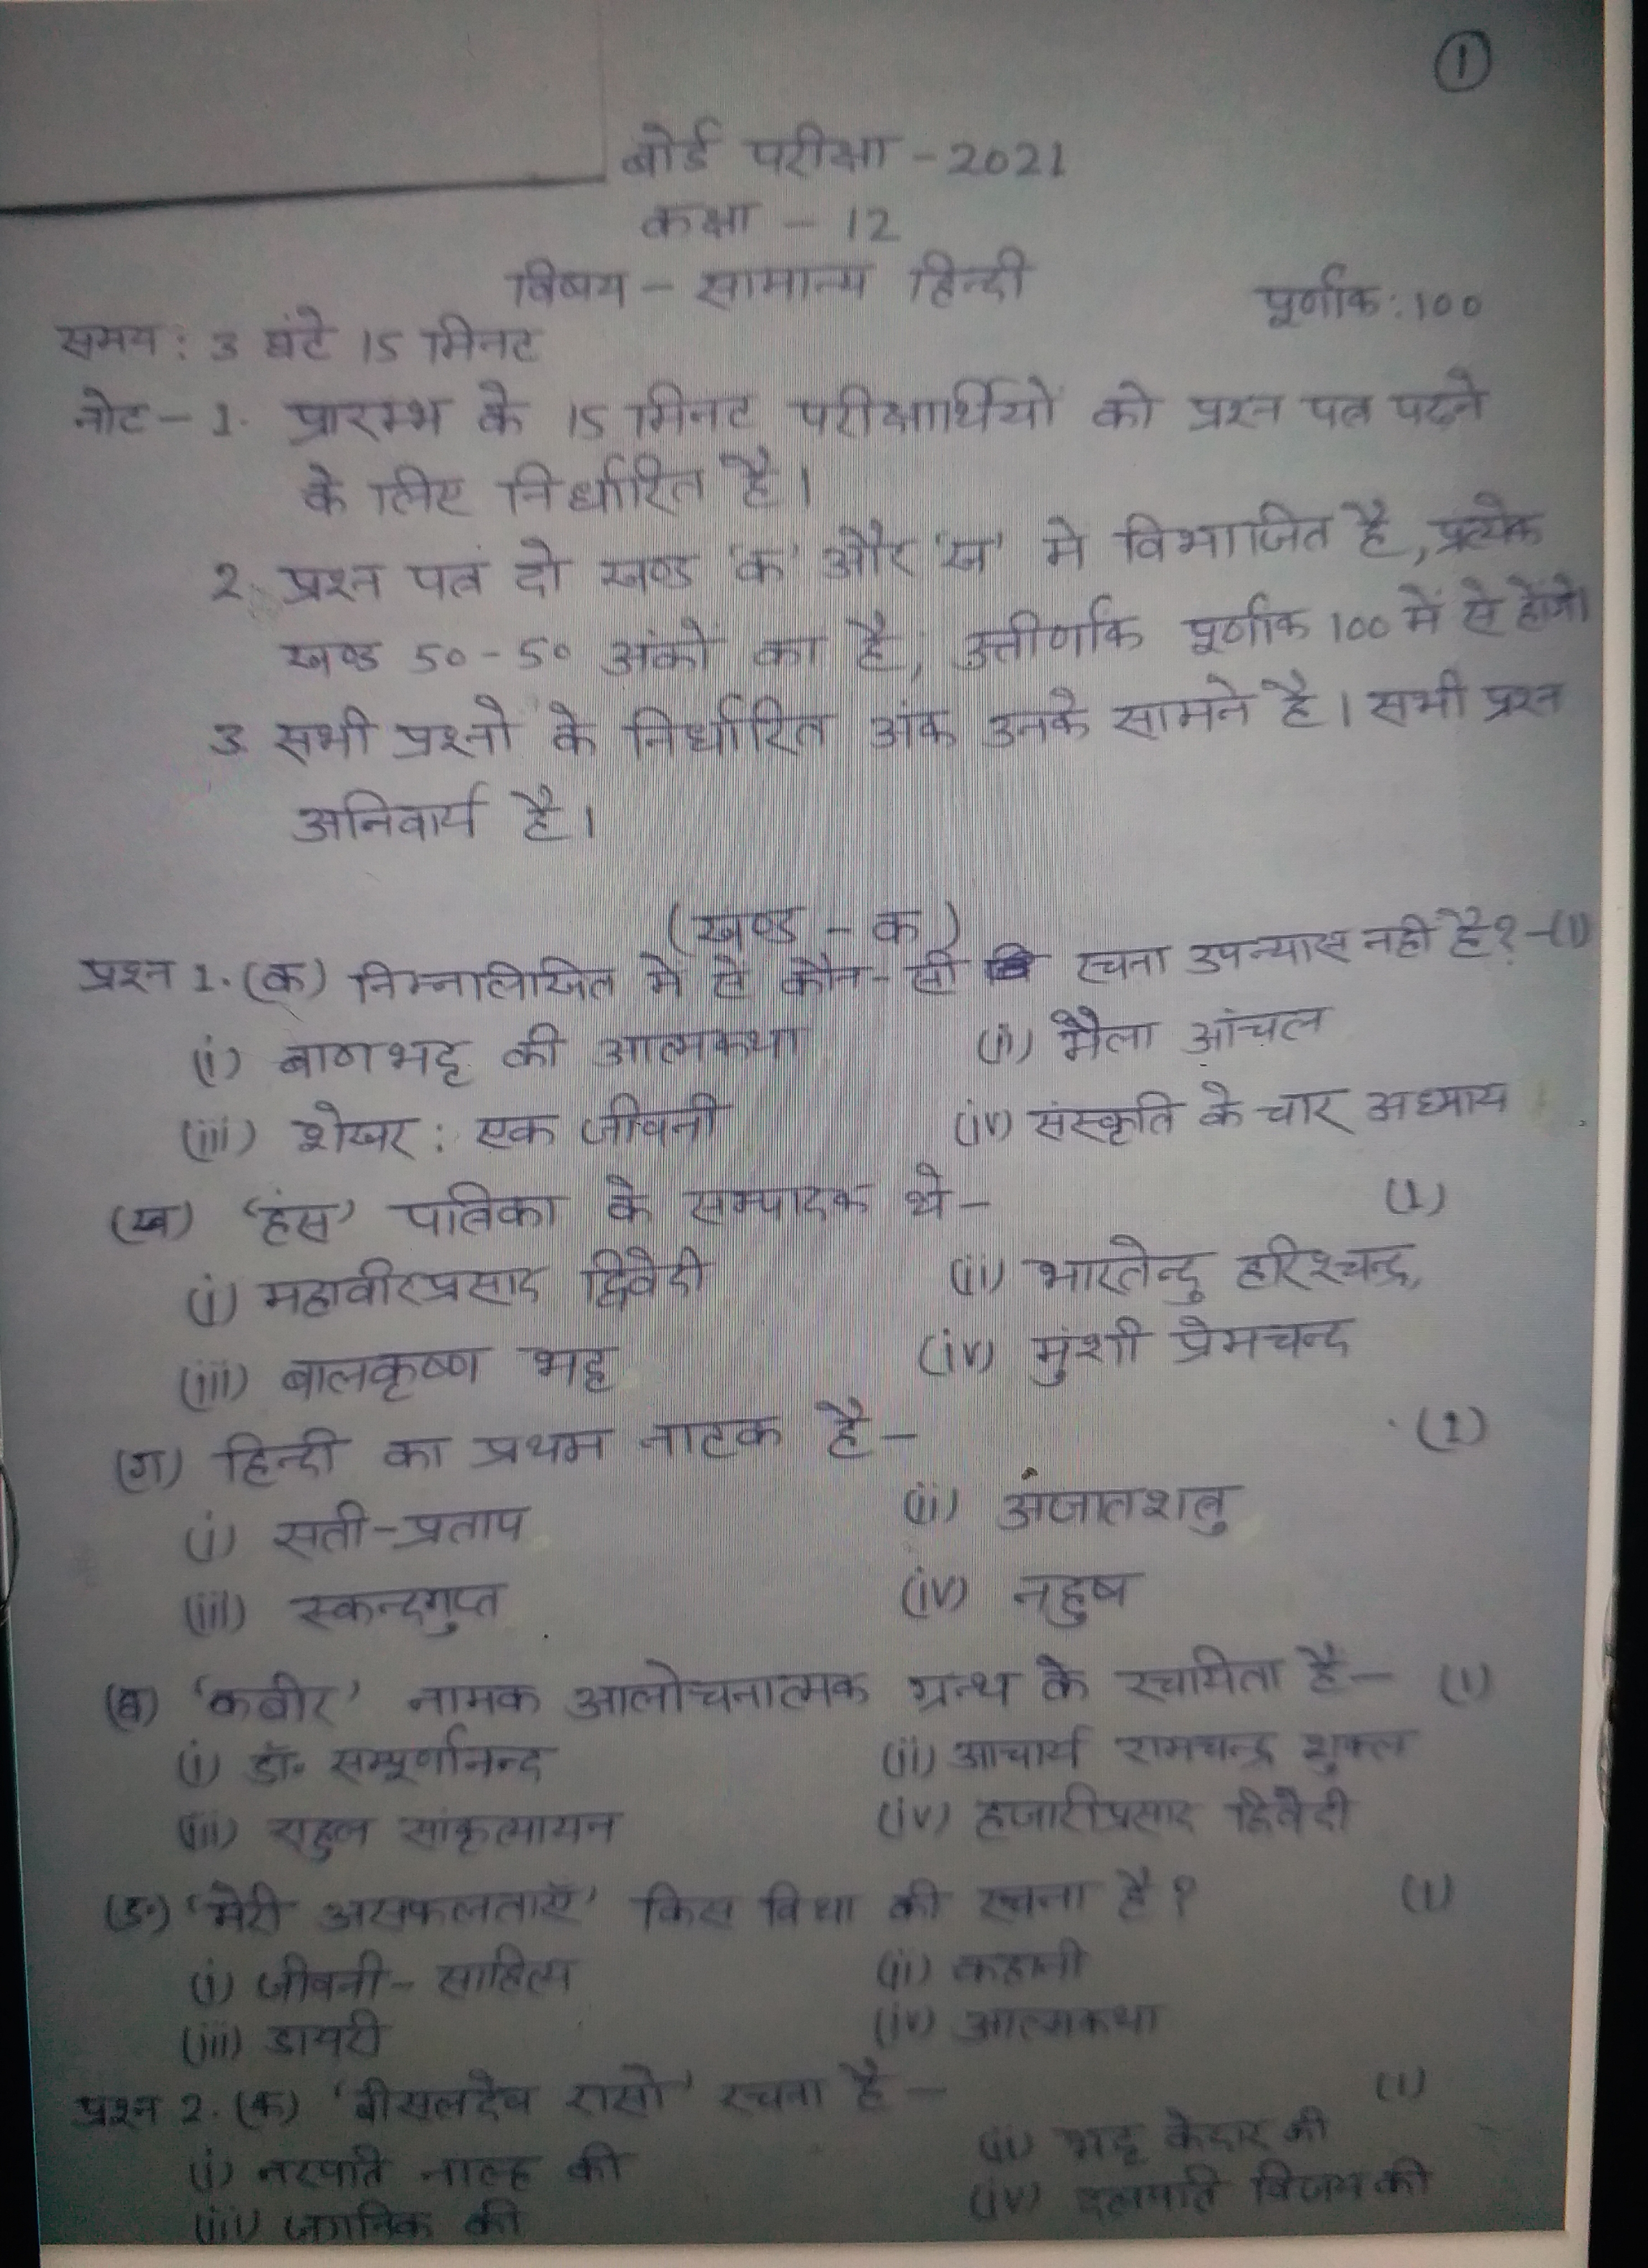 ①
बोर्ड परीक्षा - 2021
कक्षा - 12
विषय - सामान्य हिन्दी
पूर्णांक: 100
समय: 3 घंटे 15 मिनट
नोट - 1. प्रारम्भ के 15 मिनट परीक्षार्थियों को प्रश्न पत्र पढने
के लिए निर्धारित है।
2. प्रश्न पत्र दो खण्ड 'क' और 'ख' मे विभाजित है, प्रत्येक
खण्ड 50-50 अंको का है, उत्तीर्णांक पूर्णांक 100 में से होंगे।
3. सभी प्रश्नो के निर्धारित अंक उनके सामने है। सभी प्रश्न
अनिवार्य है।
(खण्ड - क)
प्रश्न 1. (क) निम्नलिखित मे से कौन-सी रचना उपन्यास नही है? - (1)
(i) बाणभट्ट की आत्मकथा (ii) मैला आंचल
(iii) शेखर: एक जीवनी (iv) संस्कृति के चार अध्याय
(ख) 'हंस' पत्रिका के सम्पादक थे - (1)
(i) महावीरप्रसाद द्विवेदी (ii) भारतेन्दु हरिश्चन्द्र,
(iii) बालकृष्ण भट्ट (iv) मुंशी प्रेमचन्द
(ग) हिन्दी का प्रथम नाटक है - (1)
(i) सती-प्रताप (ii) अजातशत्रु
(iii) स्कन्दगुप्त (iv) नहुष
(घ) 'कबीर' नामक आलोचनात्मक ग्रन्थ के रचयिता है - (1)
(i) डॉ॰ सम्पूर्णानन्द (ii) आचार्य रामचन्द्र शुक्ल
(iii) राहुल सांकृत्यायन (iv) हजारीप्रसाद द्विवेदी
(ङ) 'मेरी असफलताएँ' किस विधा की रचना है? (1)
(i) जीवनी-साहित्य (ii) कहानी
(iii) डायरी (iv) आत्मकथा
प्रश्न 2. (क) 'बीसलदेव रासो' रचना है - (1)
(i) नरपति नाल्ह की (ii) भट्ट केदार की
(iii) जगनिक की (iv) दलपति विजय की